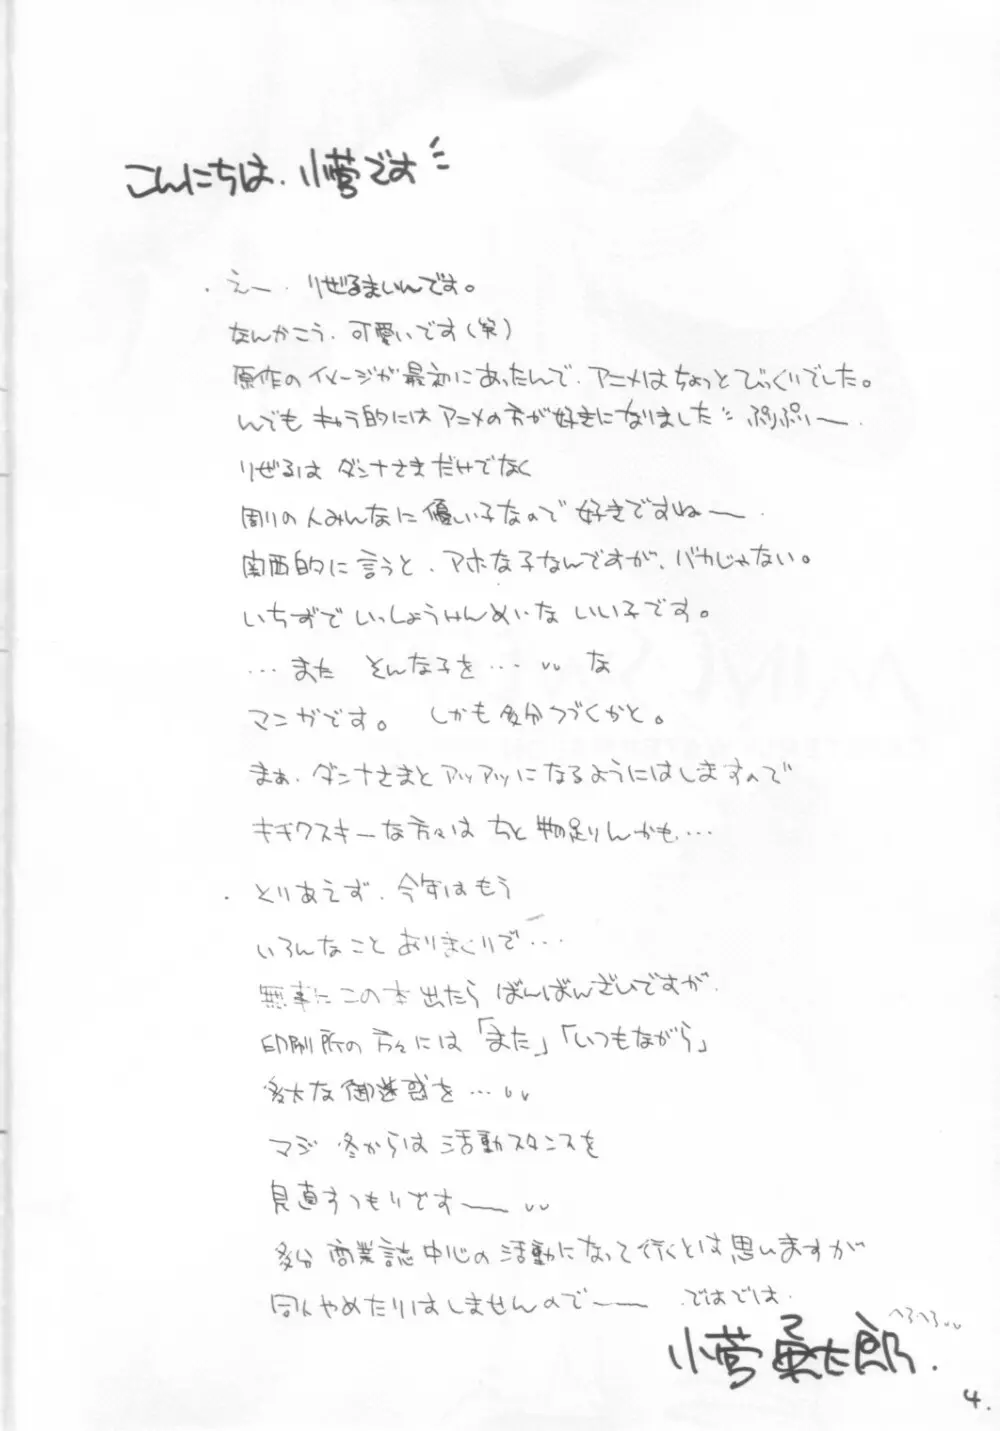 こんにちは、小菅です
・えー、りぜるまいんです。
なんかこう、可愛いです(笑)
原作のイメージが最初にあったんで、アニメはちょっとびっくりでした。
んでも キャラ的にはアニメの方が好きになりました ぷりぷりー。
りぜるは ダンナさまだけでなく
周りの人みんなに優しい子なので 好きですねー。
関西的に言うと、アホな子なんですが、バカじゃない。
いちずで いっしょうけんめいな いい子です。
…また そんな子を… な
マンガです。 しかも多分つづくかと。
まぁ、ダンナさまとアツアツになるようにはしますので
キチクスキーな方々は ちと物足りんかも…
・とりあえず、今年はもう
いろんなこと ありまくりで…
無事にこの本出たら ばんばんざいですが、
印刷所の方々には「また」「いつもながら」
多大な御迷惑を…
マジ 冬からは 活動スタンスを
見直すつもりですー
多分 商業誌中心の活動になって行くとは思いますが
同人やめたりはしませんのでー ではでは。
へろへろ
小菅勇太郎.
4.